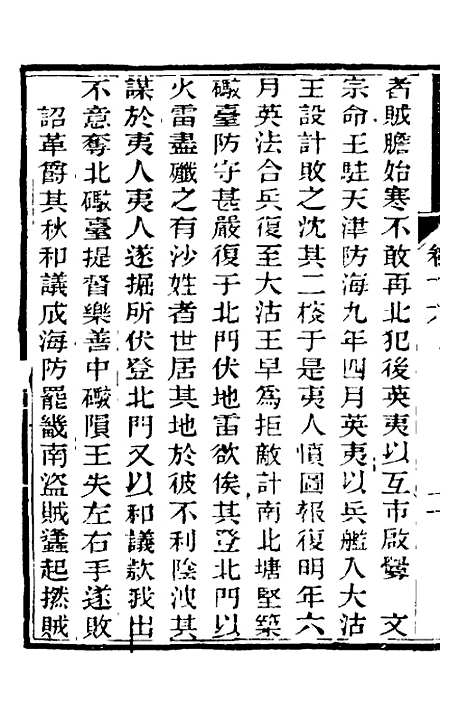 卷十六
者賊膽始寒不敢再北犯後英夷以互市啟釁　文
宗命王駐天津防海九年四月英夷以兵艦入大沽
王設計敗之沈其二艘于是夷人憤圖報復明年六
月英法合兵復至大沽王早為拒敵計南北塘堅築
礮臺防守甚嚴復于北門伏地雷欲俟其登北門以
火雷盡殲之有沙姓者世居其地於彼不利陰洩其
謀於夷人夷人遂掘所伏登北門又以和議款我出
不意奪北礮臺提督樂善中礮隕王失左右手遂敗
詔革爵其秋和議成海防罷畿南盜賊蠭起撚賊